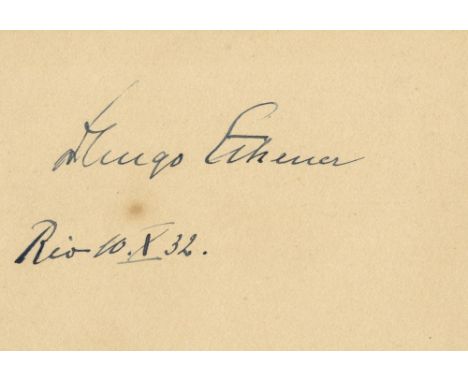 Hugo Eckener
Rio 10.X 32.